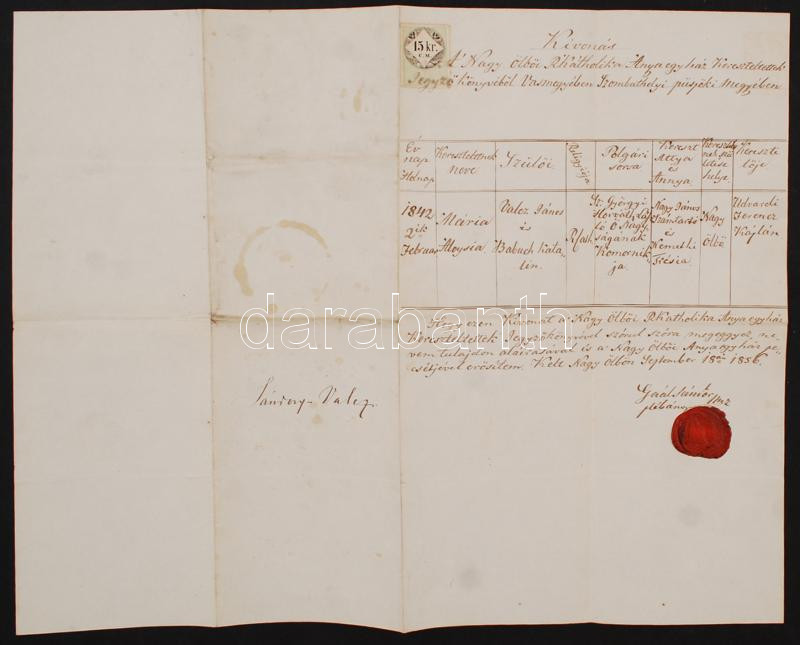 15 kr.
C.M.
Kivonás
A' Nagy Ölböi R. Katholika Anyaegyház Kereszteltettek
Jegyzőkönyvéböl Vasmegyében Szombathelyi püspöki megyében
Év
nap
Holnap
Kereszteltnek
neve
Szülői
Religiója
Polgári
sorsa
Kereszt
Attya
és
Annya
helye
Kereszte
lője
1842
2ik
Februar
Mária
Aloysia
Valez János
és
Babuch Kata-
lin
R. kath.
St. Györgyi
Horváth
ló Ő Nagy
ságának
Komornik
ja
Nagy János
és
Nemethi
Nagy
Ölbö
Udvardi
Ferencz
Káplán
Hogy ezen Kivonat a' Nagy Ölböi R. Katholika Anyaegyház
Kereszteltettek Jegyzőkönyvével szórul szóra megegygyez ne-
vem tulajdon aláirásával és a' Nagy Ölböi Anyaegyház pe-
csétjével erösitem. Költ Nagy Ölbön September 18án 1856.
Gaál Sándor mz
plébános
Valez
darabanth.com